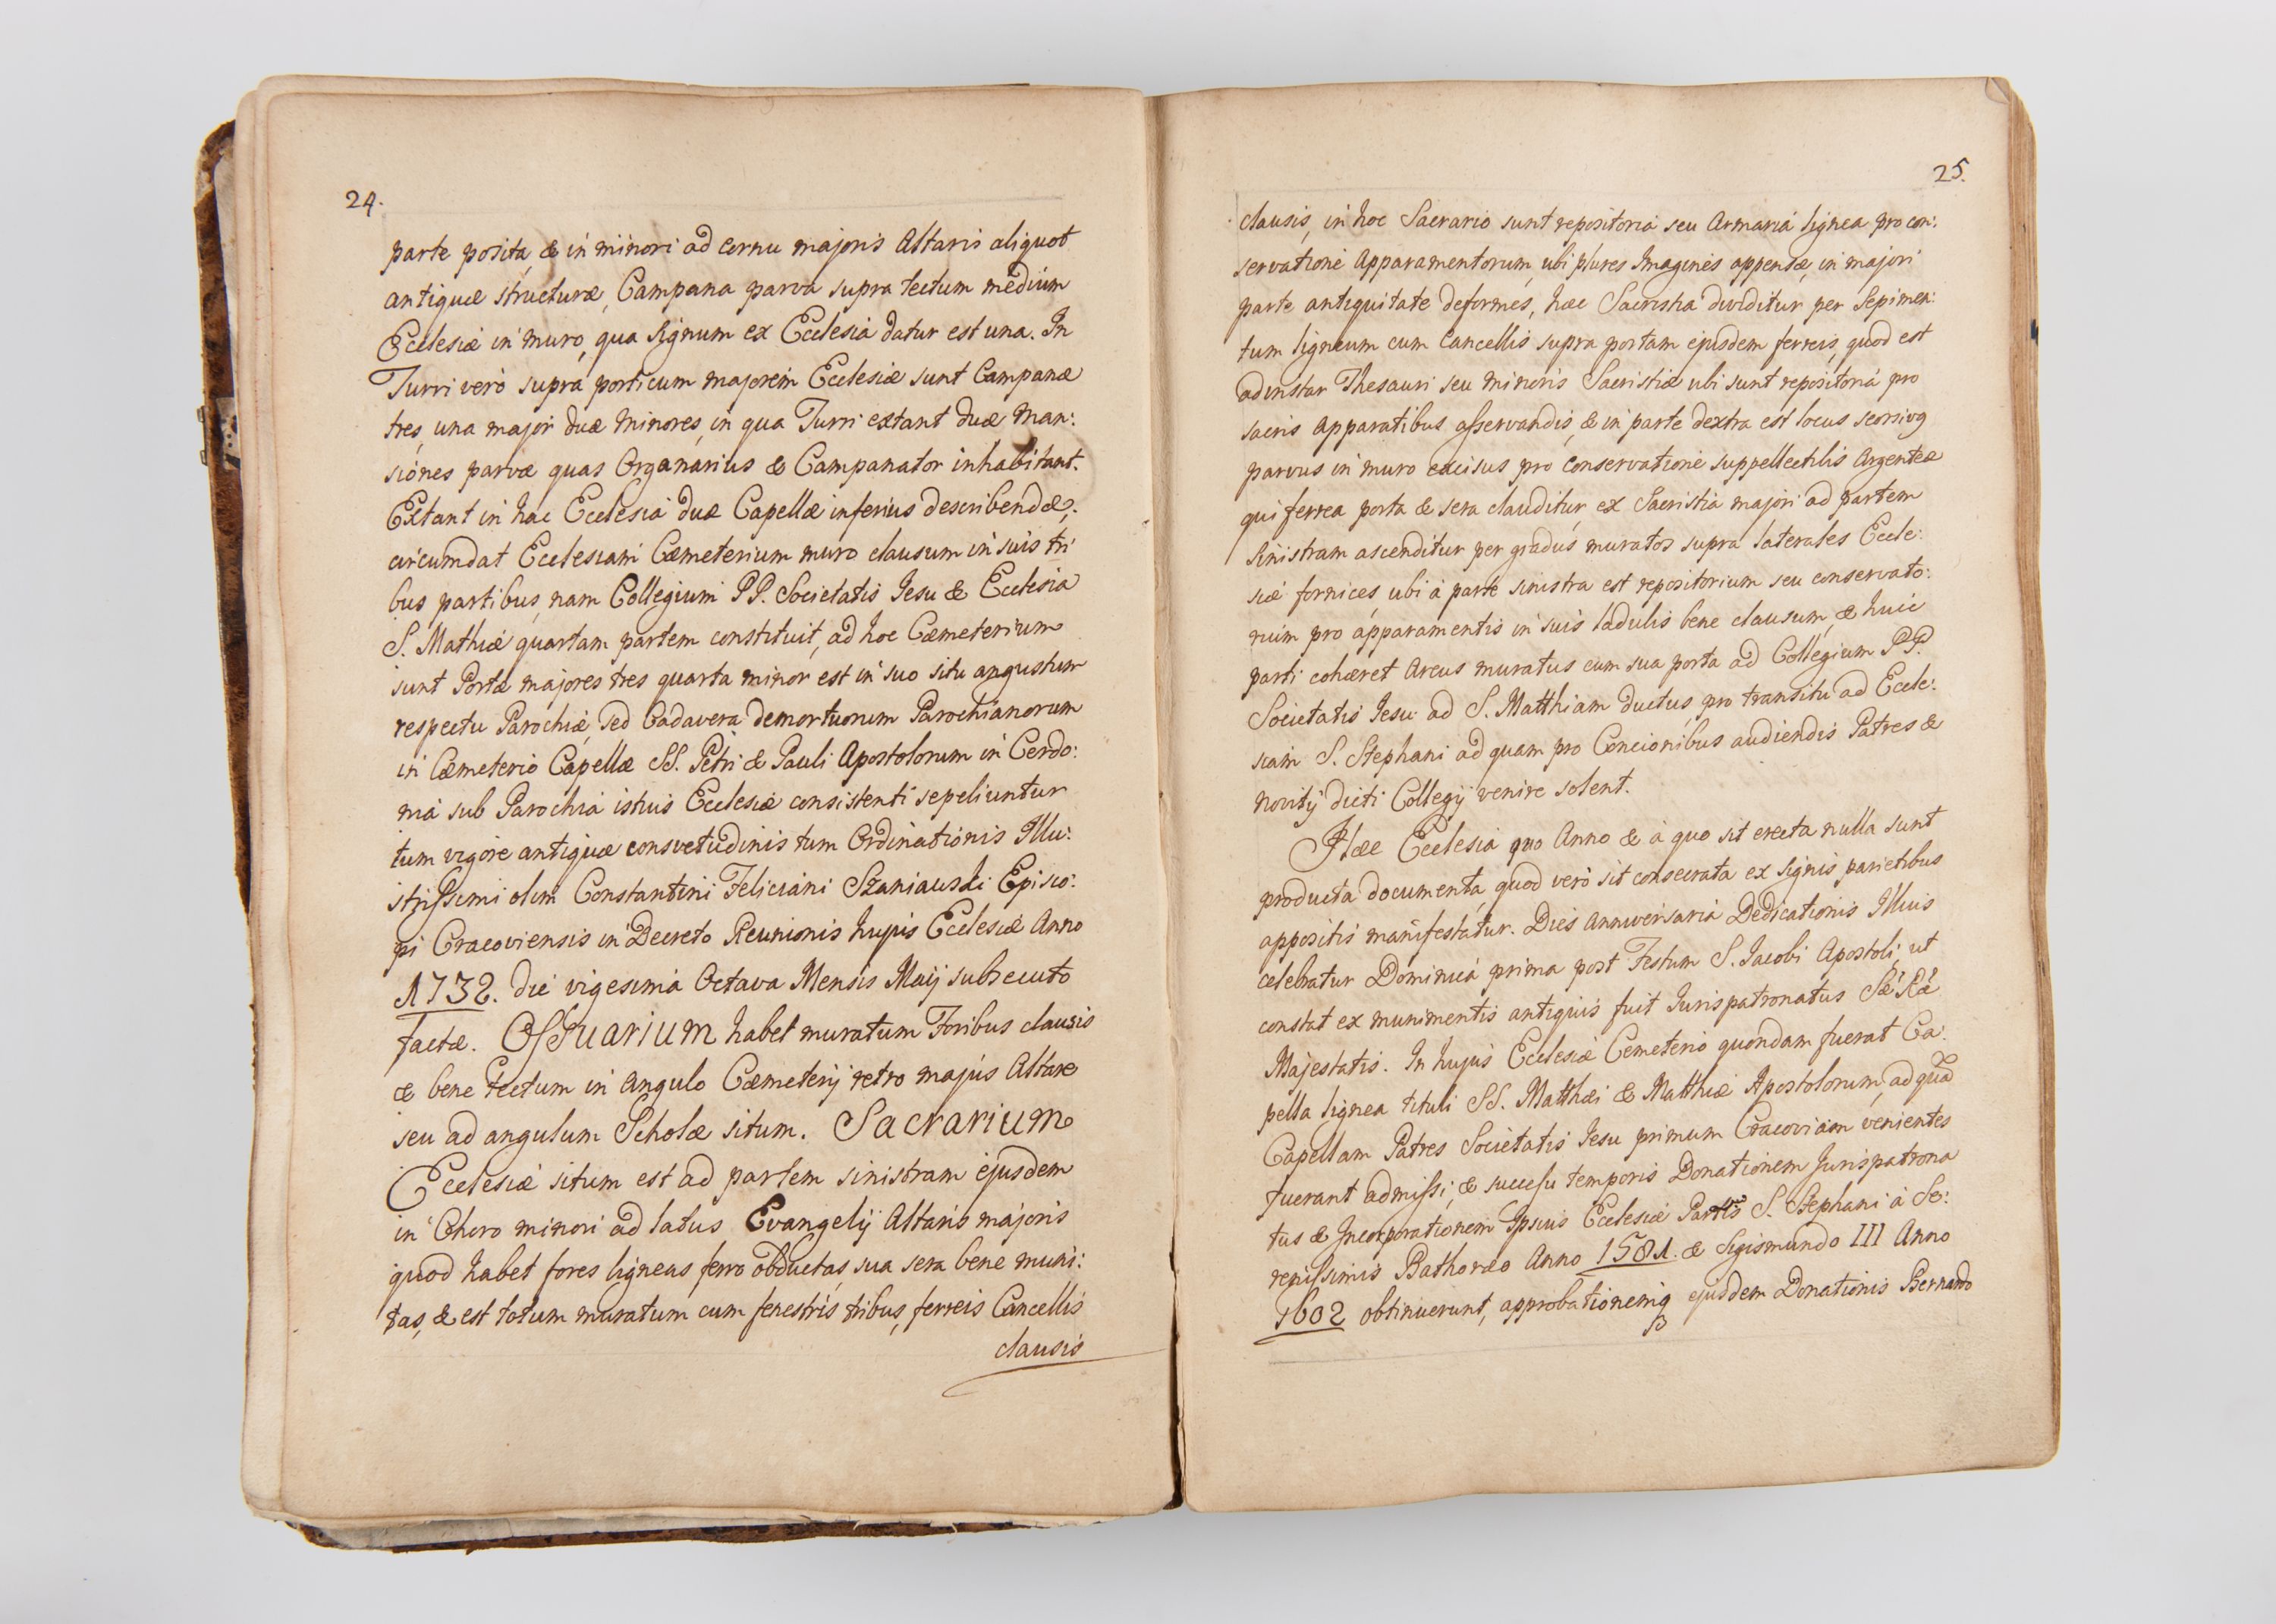 24.
parte posita, & in minori ad cornu majoris Altaris aliquot
antiquæ structuræ, Campana parva supra tectum medium
Ecclesiæ in muro, qua signum ex Ecclesia datur est una. In
Turri verò supra porticum majorem Ecclesiæ sunt Campanæ
tres, una major duæ minores, in qua Turri extant duæ man:
siones parvæ quas Organarius & Campanator inhabitant.
Extant in hac Ecclesia duæ Capellæ inferius describendæ,
circumdat Ecclesiam Cæmeterium muro clausum in suis tri
bus partibus, nam Collegium PP. Societatis Jesu & Ecclesia
S. Mathiæ quartam partem constituit, ad hoc Cæmeterium
sunt Portæ majores tres quarta minor est in suo situ angustum
respectu Parochiæ, sed Cadavera demortuorum Parochianorum
in Cæmeterio Capellæ SS. Petri & Pauli Apostolorum in Cerdo:
nia sub Parochia istius Ecclesiæ consistenti sepeliuntur
tum vigore antiquæ consvetudinis tum Ordinationis Illu:
strissimi olim Constantini Feliciani Szaniauski Episco:
pi Cracoviensis in Decreto Reunionis hujus Ecclesiæ Anno
1732. die vigesima Octava Mensis Maij subsecuto
factæ. Ossuarium habet muratum Foribus clausis
& bene tectum in angulo Cæmeterij retro majus Altare
seu ad angulum Scholæ situm. Sacrarium
Ecclesiæ situm est ad partem sinistram ejusdem
in Choro minori ad latus Evangelij Altaris majoris
quod habet fores ligneas ferro obductas, sua sera bene muni:
tas, & est totum muratum cum fenestris tribus, ferreis Cancellis
clausis
25.
clausis, in hoc Sacrario sunt repositoria seu Armaria lignea pro con:
servatione Apparamentorum, ubi plures Imagines appensæ in majori
parte antiquitate deformes, hæc Sacristia dividitur per Sepimen:
tum ligneum cum Cancellis supra portam ejusdem ferreis, quod est
adinstar Thesauri seu minoris Sacristiæ ubi sunt repositoria pro
sacris Apparatibus asservandis, & in parte dextra est locus seorsivq
parvus in muro excisus pro conservatione suppellectilis Argenteæ
qui ferrea porta & sera clauditur, ex Sacristia majori ad partem
sinistram ascenditur per gradus muratos supra laterales Eccle:
siæ fornices, ubi à parte sinistra est repositorium seu conservato:
rium pro apparamentis in suis ladulis bene clausum, & huic
parti cohæret Arcus muratus cum sua porta ad Collegium PP.
Societatis Jesu ad S. Matthiam ductus, pro transitu ad Eccle:
siam S. Stephani ad quam pro Concionibus audiendis Patres &
novitij dicti Collegij venire solent.
Hæc Ecclesia quo Anno & à quo sit erecta nulla sunt
producta documenta, quod verò sit consecrata ex signis parietibus
appositis manifestatur. Dies Anniversaria Dedicationis Illius
celebratur Dominica prima post Festum S. Jacobi Apostoli, ut
constat ex munimentis antiquis fuit Jurispatronatus Sæ Ræ
Majestatis. In hujus Ecclesiæ Cemeterio quondam fuerat Ca:
pella lignea tituli SS. Matthæi & Matthiæ Apostolorum, ad quã
Capellam Patres Societatis Jesu primum Cracoviam venientes
fuerant admissi, & successu temporis Donationem Jurispatrona
tus & Incorporationem Ipsius Ecclesiæ S. Stephani à Se:
renissimis Bathoræo Anno 1581. & Sigismundo III Anno
1602 obtinuerunt, approbationemq ejusdem Donationis Bernardo